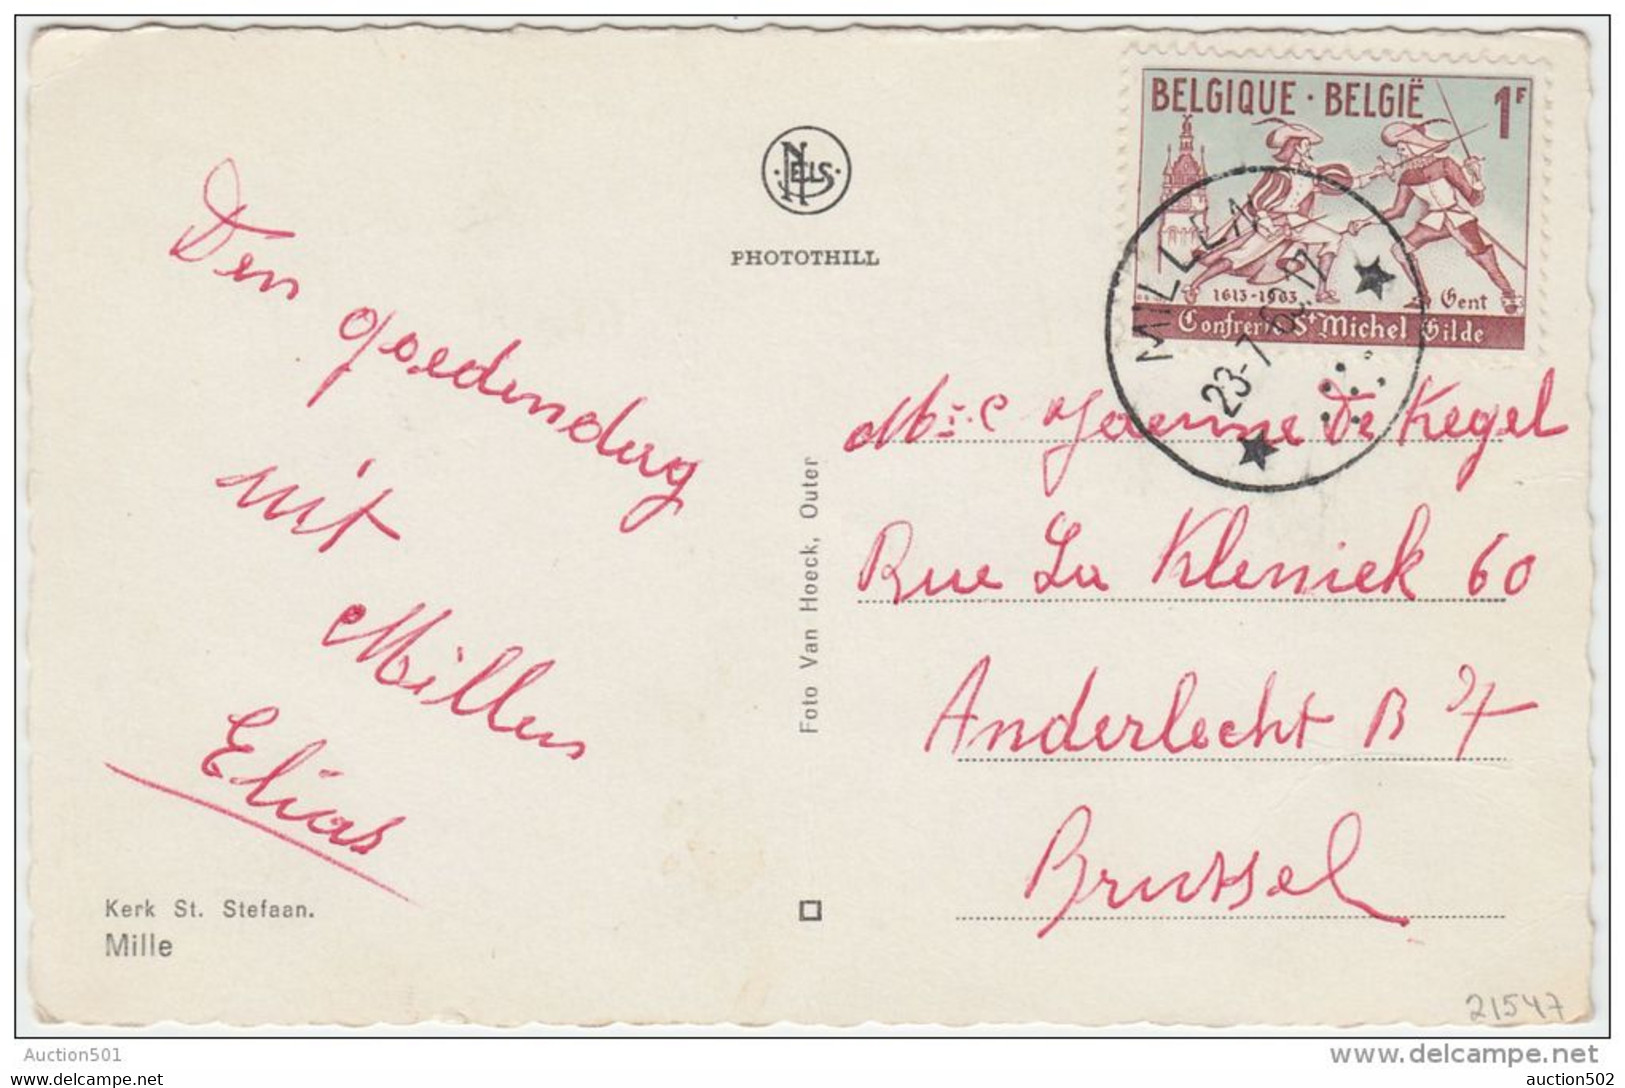 BELGIQUE · BELGIË 1F
1613-1963 Gent
Confrerie St Michel Gilde
MILLEN
23-7
NELS
PHOTOTHILL
Den goedendag
uit
Millen
Elias
Kerk St. Stefaan.
Mille
Foto Van Hoeck, Outer
De Kegel
Rue La Kleniek 60
Anderlecht B 7
Brussel
21547
Auction501
www.delcampe.net
The Delcampe auction website
auction502